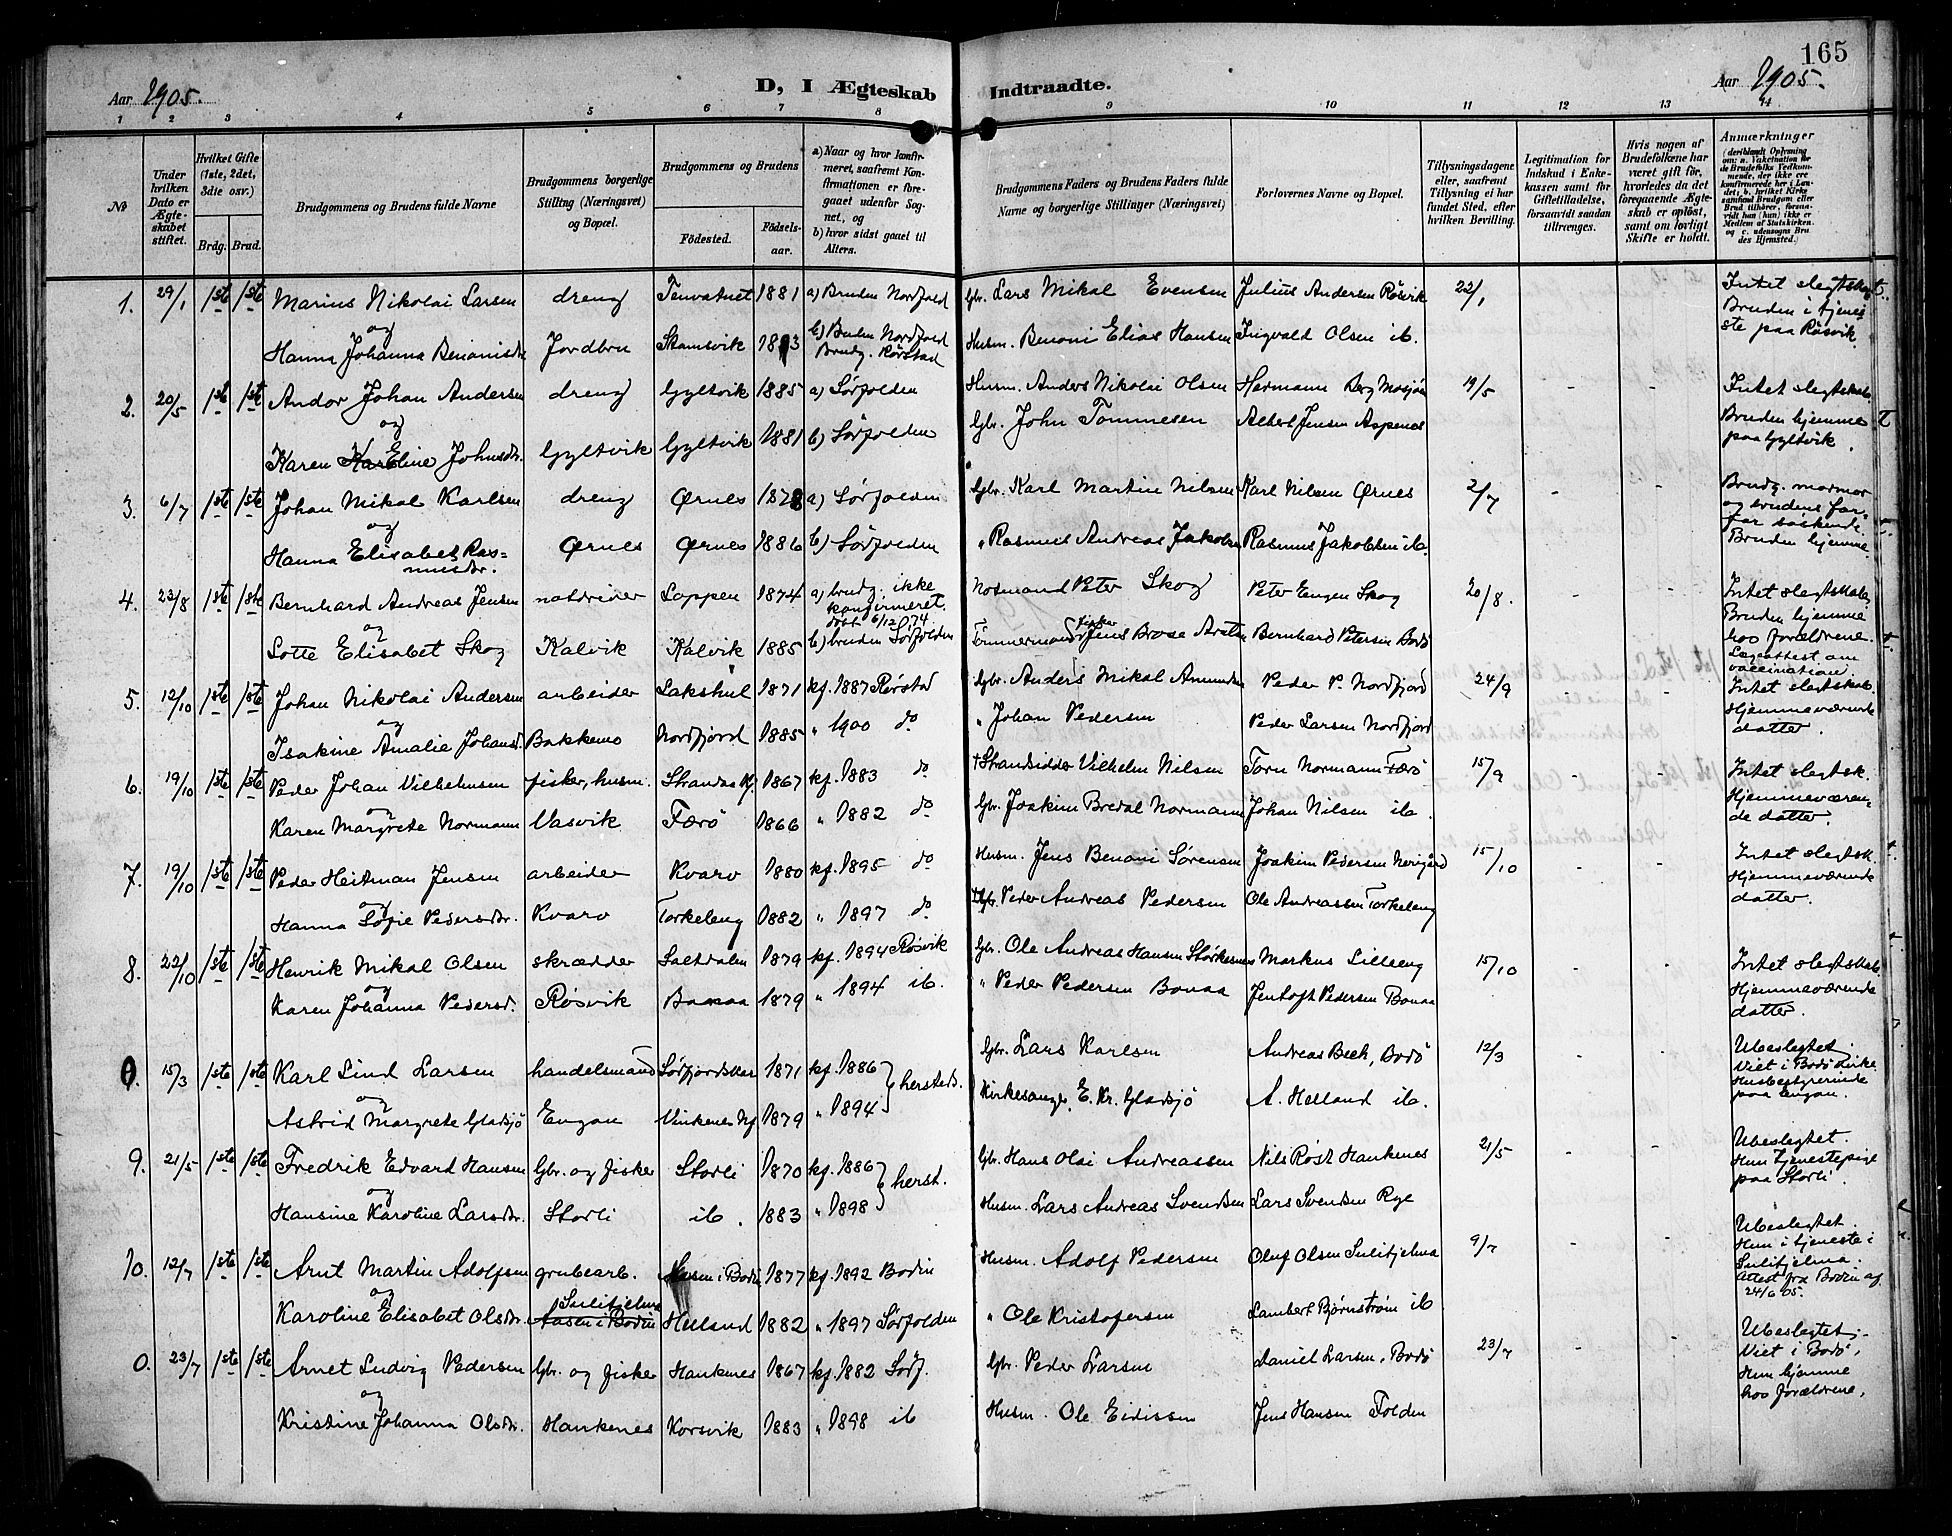 165
Aar 1905. D, I Ægteskab Indtraadte. Aar 1905.
1 2 3 4 5 6 7 8 9 10 11 12 13 14
№
Under hvilken Dato er Ægteskabet stiftet.
Hvilket Gifte (1ste, 2det, 3die osv.)
Brdg. Brud.
Brudgommens og Brudens fulde Navne
Brudgommens borgerlige Stilling (Næringsvei) og Bopæl.
Brudgommens og Brudens
Födested. Födsels-aar.
a) Naar og hvor konfirmeret, saafremt Konfirmationen er foregaaet udenfor Sognet, og
b) hvor sidst gaaet til Alters.
Brudgommens Faders og Brudens Faders fulde Navne og borgerlige Stillinger (Næringsvei)
Forlovernes Navne og Bopæl.
Tillysningsdagene eller, saafremt Tillysning ei har fundet Sted, efter hvilken Bevilling.
Legitimation for Indskud i Enkekassen samt for Giftetilladelse, forsaavidt saadan tiltrænges.
Hvis nogen af Brudefolkene har været gift før, hvorledes da det foregaaende Ægteskab er oplöst, samt om lovligt Skifte er holdt.
Anmærkninger
1. 29/1 1ste 1ste Marius Nikolai Larsen dreng Tenvatnet 1881 a) Bruden Nordfold Gbr. Lars Mikal Evensen Julius Andersen Røsvik 22/1 Intet slegtskap
og b) Bruden Nordfold Bruden i tjene-
Hanna Johanna Benonisdr Jordbru Skamsvik Brudg. Rørstad Husm. Benoni Elias Hansen Ingvald Olsen ib. ste paa Røsvik.
2. 20/5 1ste 1ste Andor Johan Andersen dreng Gyltvik 1885 a) Sørfolden Husm. Anders Nikolai Olsen Hermann Berg Mosjøen 19/5 - - Intet slegtskab.
og Bruden hjemme
Karen Eline Johnsdr. Gyltvik Gyltvik 1881 b) Sørfolden Gbr. John Tommesen Albert Jensen Aspenes paa Gyltvik.
3. 6/7 1ste 1ste Johan Mikal Karlsen dreng Ørnes 1878 a) Sørfolden Gbr. Karl Martin Nilsen Karl Nilsen Ørnes 2/7 - - Brudg. mormor
og og brudens far-
Hanna Elisabet Ras- Ørnes Ørnes 1886 b) Sørfolden " Rasmus Andreas Jakobsen Rasmus Jakobsen ib. far søskende
musdr. Bruden hjemme.
4. 23/8 1ste 1ste Bernhard Andreas Jensen notdriver Loppen 1874 a) brudg. ikke Notmand Peter Skog Peter Eugen Skog 20/8. - - Intet slegtskab,
konfirmeret. Bruden hjemme
og døbt 6/12 74 fisker hos forældrene.
Lotte Elisabet Skog Kalvik Kalvik 1885 b) bruden Sørfolden Tømmermand Jens Brose Bernhard Petersen Bodø Lægeattest om
vaccination.
5. 12/10 1ste 1ste Johan Nikolai Andersen arbeider Lakshul 1871 kf. 1887 Rørstad Gbr. Anders Mikal Amundsen Peder P. Nordfjord 24/9 - - Intet slegtskab.
og Hjemmeværende
Isakine Amalie Johansd. Bakkemo Nordfjord 1885 " 1900 do " Johan Pedersen Peder Larsen Nordfjord datter.
6. 19/10 1ste 1ste Peder Johan Vilhelmsen fisker, husm. 1867 kf. 1883 do † Strandsidder Vilhelm Nilsen Torn Normann Færø 15/9 - - Intet slegtsk.
og Hjemmeværen-
Karen Margrete Normann Vasvik Færø 1866 " 1882 do Gbr. Joakim Bredal Normann Johan Nilsen ib. de datter.
7. 19/10 1ste 1ste Peder Heitman Jensen arbeider Kvarv 1880 kf. 1895 do Husm. Jens Benoni Sørensen Joakim Pedersen Nerigård 15/10 - - Intet slegtsk.
og Hjemmeværende
Hanna Sofie Pedersdr. Kvarv Torkeleng 1882 " 1897 do Peder Andreas Pedersen Ole Andreassen Torkeleng datter.
8. 22/10 1ste 1ste Henrik Mikal Olsen skrædder Saltdalen 1879 kf. 1894 Røsvik Gbr. Ole Andreas Hansen Markus Lilleeng 15/10 - - Intet slegtskab.
og Hjemmeværende
Karen Johanna Pedersd. Røsvik Bonaa 1879 " 1894 ib. " Peder Pedersen Bonaa Jentoft Pedersen Bonaa datter.
15/3 1ste 1ste Karl Lind Larsen handelsmand 1871 kf. 1886 } hersteds. Gbr. Lars Karlsen Andreas Bech, Bodø 12/3 - - Ubeslegtet.
og Viet i Bodø kirke
Astrid Margrete Gladsjø Engan 1879 " 1894 Kirkesanger E. Kr. Gladsjø A. Helland ib. Husbestyrerinde
paa Engan.
9. 21/5 1ste 1ste Fredrik Edvard Hansen Gbr. og fisker Storli 1870 kf. 1886 } herst. Gbr. Hans Olai Andreassen Nils Røst Hankenes 21/5 - - Ubeslegtet.
og Hun tjenestepige
Hansine Karoline Larsdr. Storli ib. 1883 " 1898 Husm. Lars Andreas Svendsen Lars Svendsen Rye paa Storli.
10. 12/7 1ste 1ste Arnt Martin Adolfsen grubearb. Aasen i Bodin 1877 kf. 1892 Bodin Husm. Adolf Pedersen Oluf Olsen Sulitjelma 9/7 - - Ubeslegtet.
og Sulitjelma Hun i tjeneste i
Karoline Elisabet Olsdr. Aasen i Bodin Helland 1882 " 1897 Sørfolden " Ole Kristofersen Lambert Bjørnstrøm ib Sulitjelma.
Attest fra Bodin af
24/6 05.
0. 23/7 1ste 1ste Arnet Ludvig Pedersen Gbr. og fisker Hankenes 1867 kf. 1882 Sørf. Gbr. Peder Larsen Daniel Larsen, Bodø 23/7 - - Ubeslegtet.
og Viet i Bodø,
Kristine Johanna Olsdr. Hankenes Korsvik 1883 " 1898 ib Husm. Ole Eidissen Jens Hansen Folden Hun hjemme
hos forældrene,